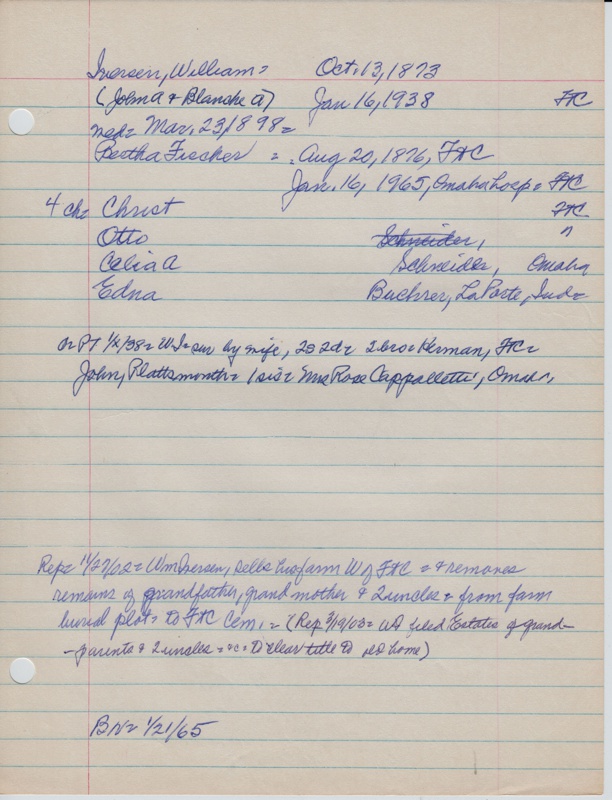 Iversen, William = Oct. 13, 1873
(John A + Blanche A) Jan 16, 1938 FtC
med= Mar. 23, 1898=
Bertha Fischer = Aug 20, 1876, FtC
Jan. 16, 1965, Omaha hosp = FtC
4 ch= Christ FtC
Otto Schneider, "
Celia A Schneider, Omaha
Edna Buchrer, LaPorte, Ind=
WI= sur by wife, 2s 2d= 2 bro= Herman, FtC=
John, Plattsmouth= 1 sis= Mrs Rose Cappelletti, Omaha,
Rep= 11/27/02= Wm Iversen, sells his farm W of FtC = + removes
remains of grandfather, grand mother + 2 uncles = from farm
burial plot= to FtC Cem. = (Rep 3/19/03= filed Estates of grand-
-parents + 2 uncles = to clear title to home)
BN= 1/21/65